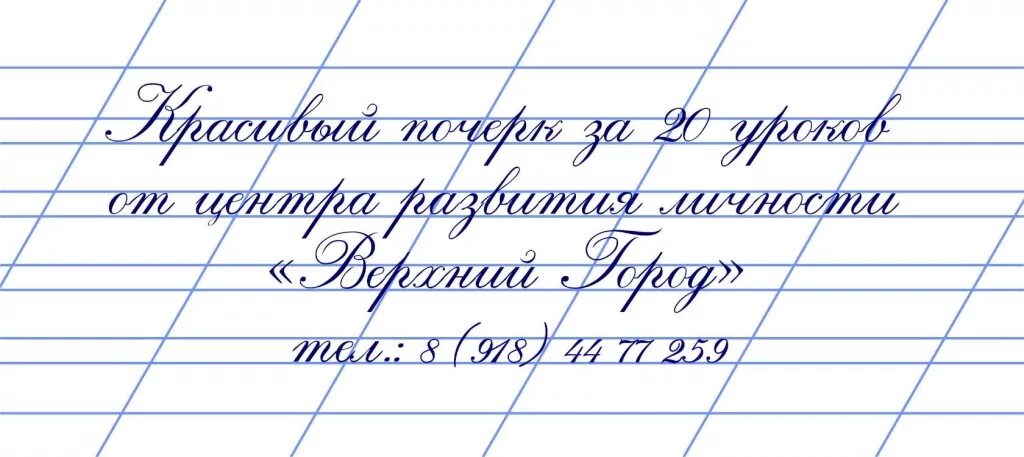 Красивый почерк за 20 уроков
от центра развития личности
«Верхний Город»
тел.: 8 (918) 44 77 259